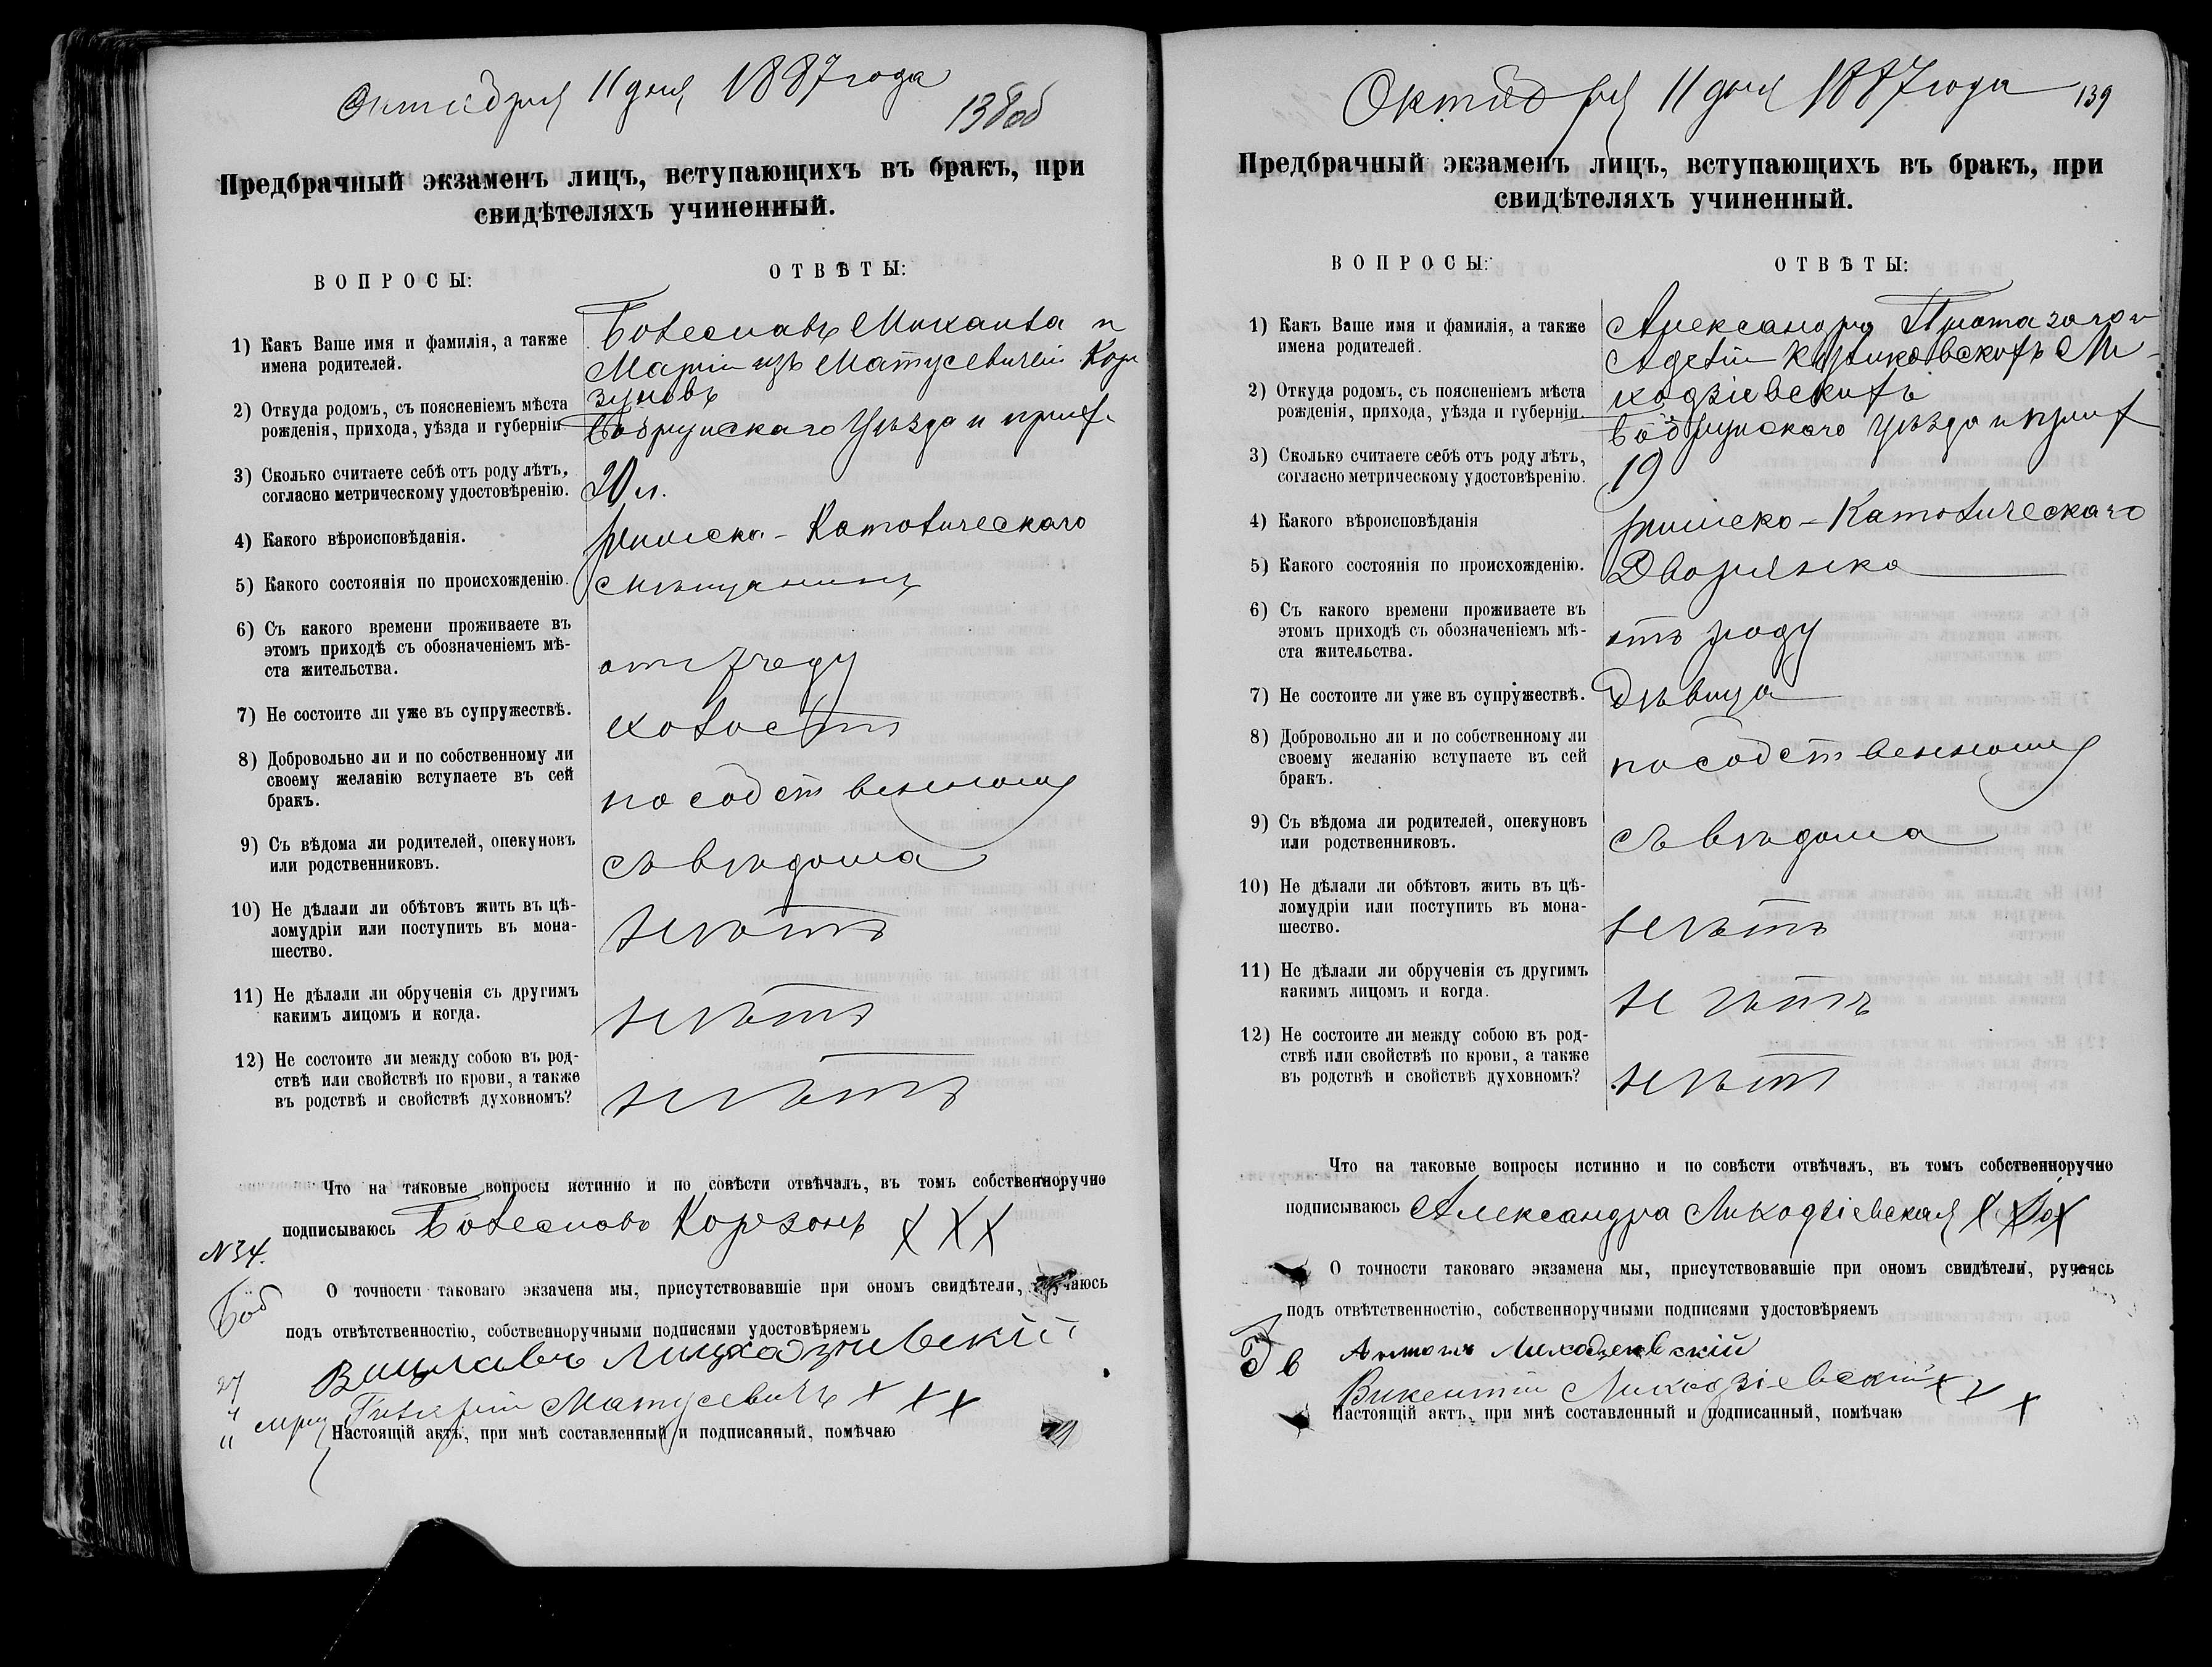 Октября 11 дня 1887 года
138об
Предбрачный экзаменъ лицъ, вступающихъ въ бракъ, при
свидѣтеляхъ учиненный.
ВОПРОСЫ:
ОТВѢТЫ:
1) Какъ Ваше имя и фамилія, а также
имена родителей.
Болеславъ Михаила и
Маріи изъ Матусевичей Кор
зуновъ
2) Откуда родомъ, съ поясненіемъ мѣста
рожденія, прихода, уѣзда и губерніи
Бобруйскаго Уѣзда и прих.
3) Сколько считаете себѣ отъ роду лѣтъ,
согласно метрическому удостовѣренію.
20 л.
4) Какого вѣроисповѣданія.
римско-Католическаго
5) Какого состоянія по происхожденію.
мѣщанинъ
6) Съ какого времени проживаете въ
этомъ приходѣ съ обозначеніемъ мѣ-
ста жительства.
отъ роду
7) Не состоите ли уже въ супружествѣ.
холостъ
8) Добровольно ли и по собственному ли
своему желанію вступаете въ сей
бракъ.
по собственному
9) Съ вѣдома ли родителей, опекуновъ
или родственниковъ.
съ вѣдома
10) Не дѣлали ли обѣтовъ жить въ цѣ-
ломудріи или поступить въ мона-
шество.
нѣтъ
11) Не дѣлали ли обрученія съ другимъ
какимъ лицомъ и когда.
нѣтъ
12) Не состоите ли между собою въ род-
ствѣ или свойствѣ по крови, а также
въ родствѣ и свойствѣ духовномъ?
нѣтъ
Что на таковые вопросы истинно и по совѣсти отвѣчалъ, въ томъ собственноручно
подписываюсь Болеславъ Корзонъ XXX
N34.
Боб
О точности таковаго экзамена мы, присутствовавшіе при ономъ свидѣтели, ручаюсь
подъ отвѣтственностію, собственноручными подписями удостовѣряемъ
Вацлавъ
27
Матусевичъ х х х
11
Настоящій актъ, при мнѣ составленный и подписанный, помѣчаю
Октября 11 дня 1887 года
139
Предбрачный экзаменъ лицъ, вступающихъ въ бракъ, при
свидѣтеляхъ учиненный.
ВОПРОСЫ:
ОТВѢТЫ:
1) Какъ Ваше имя и фамилія, а также
имена родителей.
Александра
2) Откуда родомъ, съ поясненіемъ мѣста
рожденія, прихода, уѣзда и губерніи.
Бобруйскаго Уѣзда и прих
3) Сколько считаете себѣ отъ роду лѣтъ,
согласно метрическому удостовѣренію.
19
4) Какого вѣроисповѣданія
римско-Католическаго
5) Какого состоянія по происхожденію.
Дворянка
6) Съ какого времени проживаете въ
этомъ приходѣ съ обозначеніемъ мѣ-
ста жительства.
отъ роду
7) Не состоите ли уже въ супружествѣ.
Дѣвица
8) Добровольно ли и по собственному ли
своему желанію вступаете въ сей
бракъ.
по собственному
9) Съ вѣдома ли родителей, опекуновъ
или родственниковъ.
съ вѣдома
10) Не дѣлали ли обѣтовъ жить въ цѣ-
ломудріи или поступить въ мона-
шество.
нѣтъ
11) Не дѣлали ли обрученія съ другимъ
какимъ лицомъ и когда.
нѣтъ
12) Не состоите ли между собою въ род-
ствѣ или свойствѣ по крови, а также
въ родствѣ и свойствѣ духовномъ?
нѣтъ
Что на таковые вопросы истинно и по совѣсти отвѣчалъ, въ томъ собственноручно
подписываюсь Александра Лиходзіевская XXX
О точности таковаго экзамена мы, присутствовавшіе при ономъ свидѣтели, ручаясь
подъ отвѣтственностію, собственноручными подписями удостовѣряемъ
Дв
Антонъ Лиходзіевскій
Викентій Лиходзіевскій х х х
Настоящій актъ, при мнѣ составленный и подписанный, помѣчаю